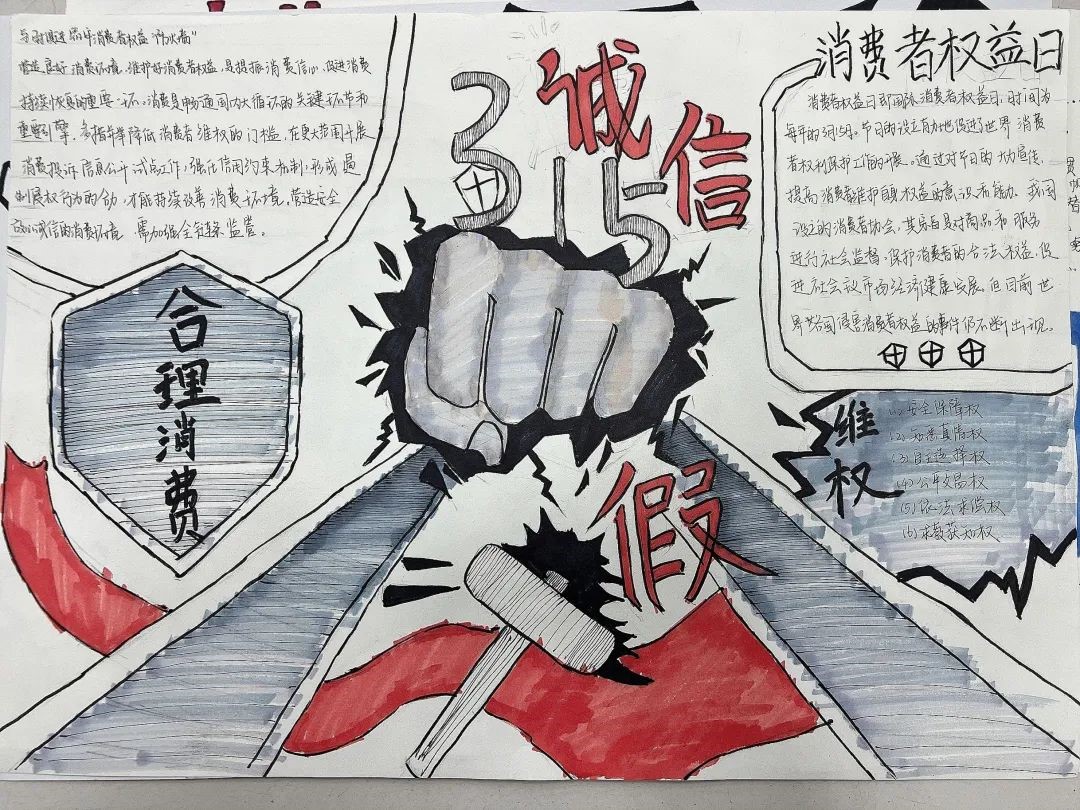 与时俱进 筑牢消费者权益“防火墙”
营造良好消费环境,维护好消费者权益,是提振消费信心,促进消费
持续恢复的重要一环。消费是畅通国内大循环的关键环节和
重要引擎,多措并举降低消费者维权的门槛,在更大范围开展
消费投诉信息公示试点工作,强化信用约束机制,形成遏
制侵权行为的合力,才能持续改善消费环境,营造安全
放心诚信的消费环境 需加强全链条监管。
315
诚信
消费者权益日
消费者权益日即国际消费者权益日,日时间为
每年的3月15日。节日的设立有力地促进了世界消费
者权利保护工作的开展。通过对节日的大力宣传,
提高消费者维护自身权益的意识和能力。我国
设立的消费者协会,其宗旨是对商品和服务
进行社会监督,保护消费者的合法权益,促
进社会主义市场经济健康发展。但目前世
界各国侵害消费者权益的事件仍不断出现。
合理消费
维权
(1)安全保障权
(2)知悉真情权
(3)自主选择权
(4)公平交易权
(5)依法求偿权
(6)求教获知权
假